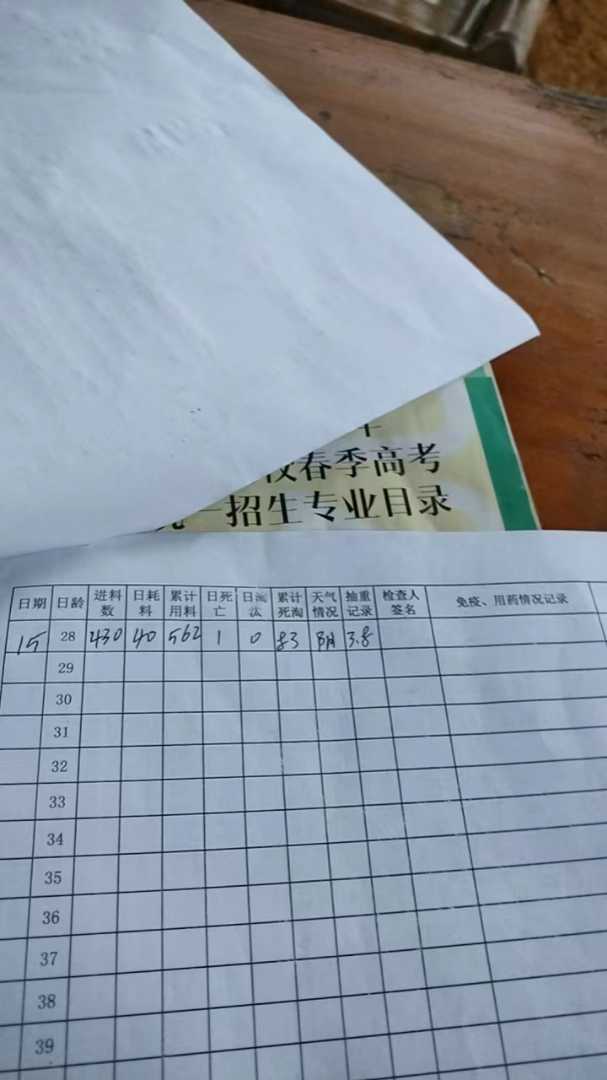 校春季高考
一招生专业目录
日期 日龄 进料数 日耗料 累计用料 日死亡 日淘汰 累计死淘 天气情况 抽重记录 检查人签名 免疫、用药情况记录
15 28 430 40 562 1 0 83 阴 3.8
29
30
31
32
33
34
35
36
37
38
39